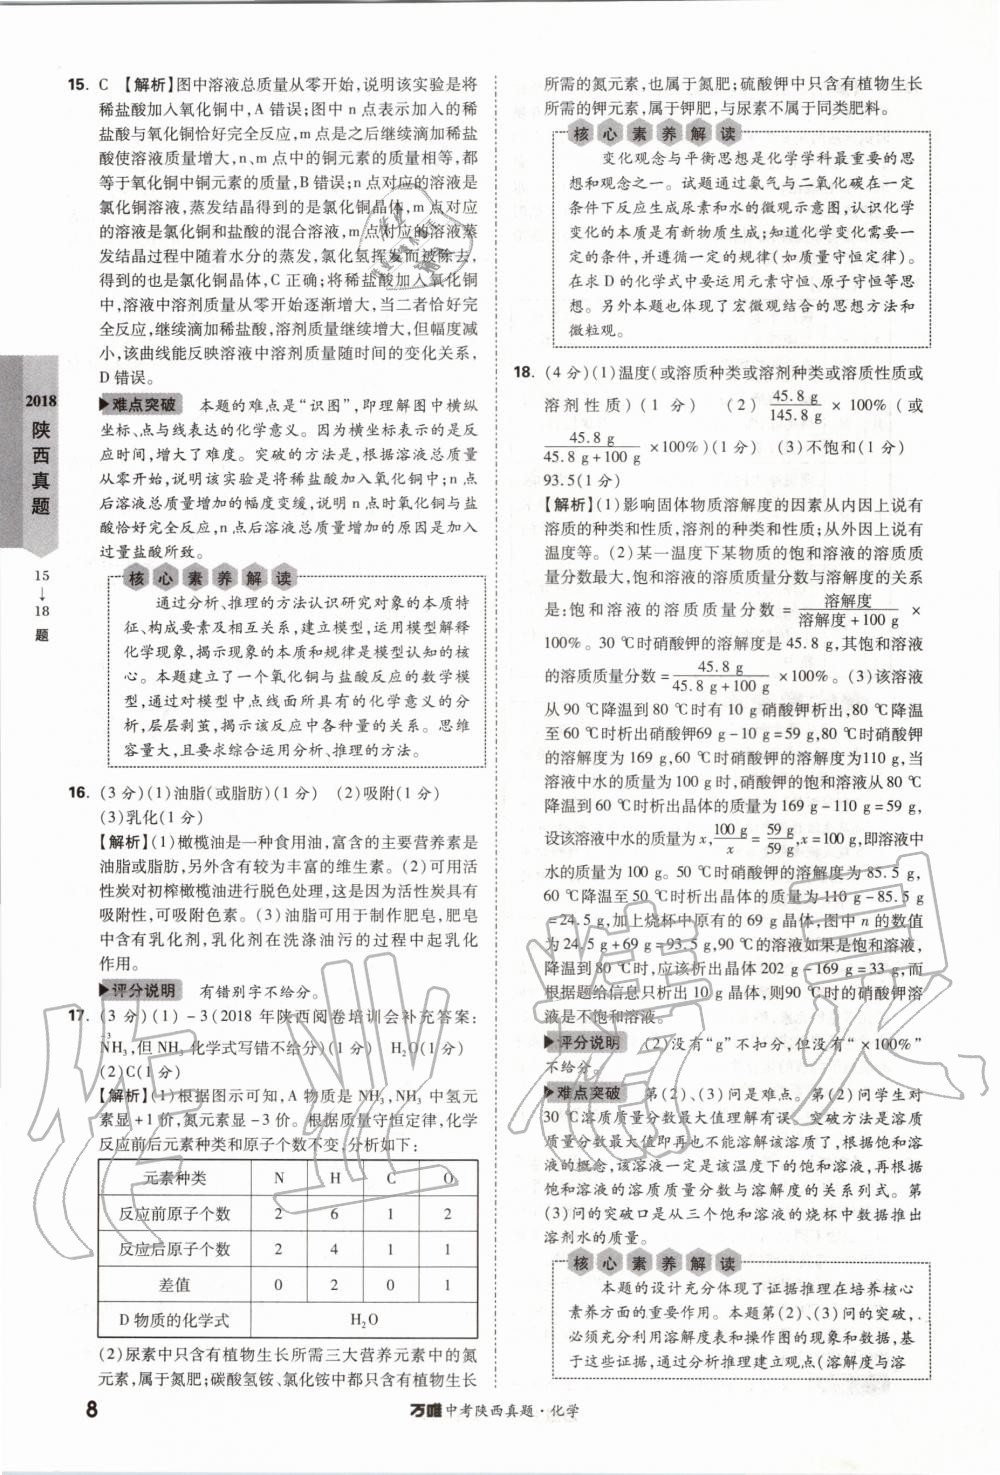 15. C 【解析】图中溶液总质量从零开始,说明该实验是将
稀盐酸加入氧化铜中,A 错误;图中 n 点表示加入的稀
盐酸与氧化铜恰好完全反应,m 点是之后继续滴加稀盐
酸使溶液质量增大,n、m 点中的铜元素的质量相等,都
等于氧化铜中铜元素的质量,B 错误;n 点对应的溶液是
氯化铜溶液,蒸发结晶得到的是氯化铜晶体,m 点对应
的溶液是氯化铜和盐酸的混合溶液,m 点对应的溶液蒸
发结晶过程中随着水分的蒸发,氯化氢挥发而被除去,
得到的也是氯化铜晶体,C 正确;将稀盐酸加入氧化铜
中,溶液中溶剂质量从零开始逐渐增大,当二者恰好完
全反应,继续滴加稀盐酸,溶剂质量继续增大,但幅度减
小,该曲线能反映溶液中溶剂质量随时间的变化关系,
D 错误。
难点突破 本题的难点是“识图”,即理解图中横纵
坐标、点与线表达的化学意义。因为横坐标表示的是反
应时间,增大了难度。突破的方法是,根据溶液总质量
从零开始,说明该实验是将稀盐酸加入氧化铜中;n 点
后溶液总质量增加的幅度变缓,说明 n 点时氧化铜与盐
酸恰好完全反应,n 点后溶液总质量增加的原因是加入
过量盐酸所致。
核心素养解读
通过分析、推理的方法认识研究对象的本质特
征、构成要素及相互关系,建立模型,运用模型解释
化学现象,揭示现象的本质和规律是模型认知的核
心。本题建立了一个氧化铜与盐酸反应的数学模
型,通过对模型中点线面所具有的化学意义的分
析,层层剥茧,揭示该反应中各种量的关系。思维
容量大,且要求综合运用分析、推理的方法。
16. (3 分)(1)油脂(或脂肪)(1 分) (2)吸附(1 分)
(3)乳化(1 分)
【解析】(1)橄榄油是一种食用油,富含的主要营养素是
油脂或脂肪,另外含有较为丰富的维生素。(2)可用活
性炭对初榨橄榄油进行脱色处理,这是因为活性炭具有
吸附性,可吸附色素。(3)油脂可用于制作肥皂,肥皂
中含有乳化剂,乳化剂在洗涤油污的过程中起乳化
作用。
评分说明 有错别字不给分。
17. (3 分)(1) -3(2018 年陕西阅卷培训会补充答案:
-3
NH₃,但 NH₃ 化学式写错不给分)(1 分) H₂O(1 分)
(2)C(1 分)
【解析】(1)根据图示可知,A 物质是 NH₃,NH₃ 中氢元
素显+1 价,氮元素显-3 价。根据质量守恒定律,化学
反应前后元素种类和原子个数不变,分析如下:
元素种类 N H C O
反应前原子个数 2 6 1 2
反应后原子个数 2 4 1 1
差值 0 2 0 1
D 物质的化学式 H₂O
(2)尿素中只含有植物生长所需三大营养元素中的氮
元素,属于氮肥;碳酸氢铵、氯化铵中都只含有植物生长
所需的氮元素,也属于氮肥;硫酸钾中只含有植物生长
所需的钾元素,属于钾肥,与尿素不属于同类肥料。
核心素养解读
变化观念与平衡思想是化学学科最重要的思
想和观念之一。试题通过氨气与二氧化碳在一定
条件下反应生成尿素和水的微观示意图,认识化学
变化的本质是有新物质生成;知道化学变化需要一
定的条件,并遵循一定的规律(如质量守恒定律)。
在求 D 的化学式中要运用元素守恒、原子守恒等思
想。另外本题也体现了宏微观结合的思想方法和
微粒观。
18. (4 分)(1)温度(或溶质种类或溶剂种类或溶质性质或
溶剂性质)(1 分) (2) 45.8 g/145.8 g × 100% (或
45.8 g/45.8 g+100 g ×100%)(1 分) (3)不饱和(1 分)
93.5(1 分)
【解析】(1)影响固体物质溶解度的因素从内因上说有
溶质的种类和性质,溶剂的种类和性质;从外因上说有
温度等。(2)某一温度下某物质的饱和溶液的溶质质
量分数最大,饱和溶液的溶质质量分数与溶解度的关系
是:饱和溶液的溶质质量分数 = 溶解度/溶解度+100 g ×
100%。30 ℃时硝酸钾的溶解度是 45.8 g,其饱和溶液
的溶质质量分数= 45.8 g/45.8 g+100 g ×100%。(3)该溶液
从 90 ℃降温到 80 ℃时有 10 g 硝酸钾析出,80 ℃降温
至 60 ℃时析出硝酸钾69 g-10 g=59 g,80 ℃时硝酸钾
的溶解度为 169 g,60 ℃时硝酸钾的溶解度为110 g,当
溶液中水的质量为 100 g 时,硝酸钾的饱和溶液从 80 ℃
降温到 60 ℃时析出晶体的质量为 169 g-110 g=59 g,
设该溶液中水的质量为 x, 100 g/x = 59 g/59 g,x=100 g,即溶液中
水的质量为 100 g。50 ℃时硝酸钾的溶解度为 85.5 g,
60 ℃降温至 50 ℃时析出晶体的质量为 110 g-85.5 g
=24.5 g,加上烧杯中原有的 69 g 晶体,图中 n 的数值
为 24.5 g+69 g=93.5 g,90 ℃的溶液如果是饱和溶液,
降温到 80 ℃时,应该析出晶体 202 g-169 g=33 g,而
根据题给信息只析出 10 g 晶体,则90 ℃时的硝酸钾溶
液是不饱和溶液。
评分说明 (2)没有“g”不扣分,但没有“×100%”
不给分。
难点突破 第(2)、(3)问是难点。第(2)问学生对
30 ℃溶质质量分数最大值理解有误。突破方法是溶质
质量分数最大值即再也不能溶解该溶质了,根据饱和溶
液的概念,该溶液一定是该温度下的饱和溶液,再根据
饱和溶液的溶质质量分数与溶解度的关系列式。第
(3)问的突破口是从三个饱和溶液的烧杯中数据推出
溶剂水的质量。
核心素养解读
本题的设计充分体现了证据推理在培养核心
素养方面的重要作用。本题第(2)、(3)问的突破,
必须充分利用溶解度表和操作图的现象和数据,基
于这些证据,通过分析推理建立观点(溶解度与溶
2018
陕西真题
15
↓
18
题
8
万唯中考陕西真题·化学
作业精灵